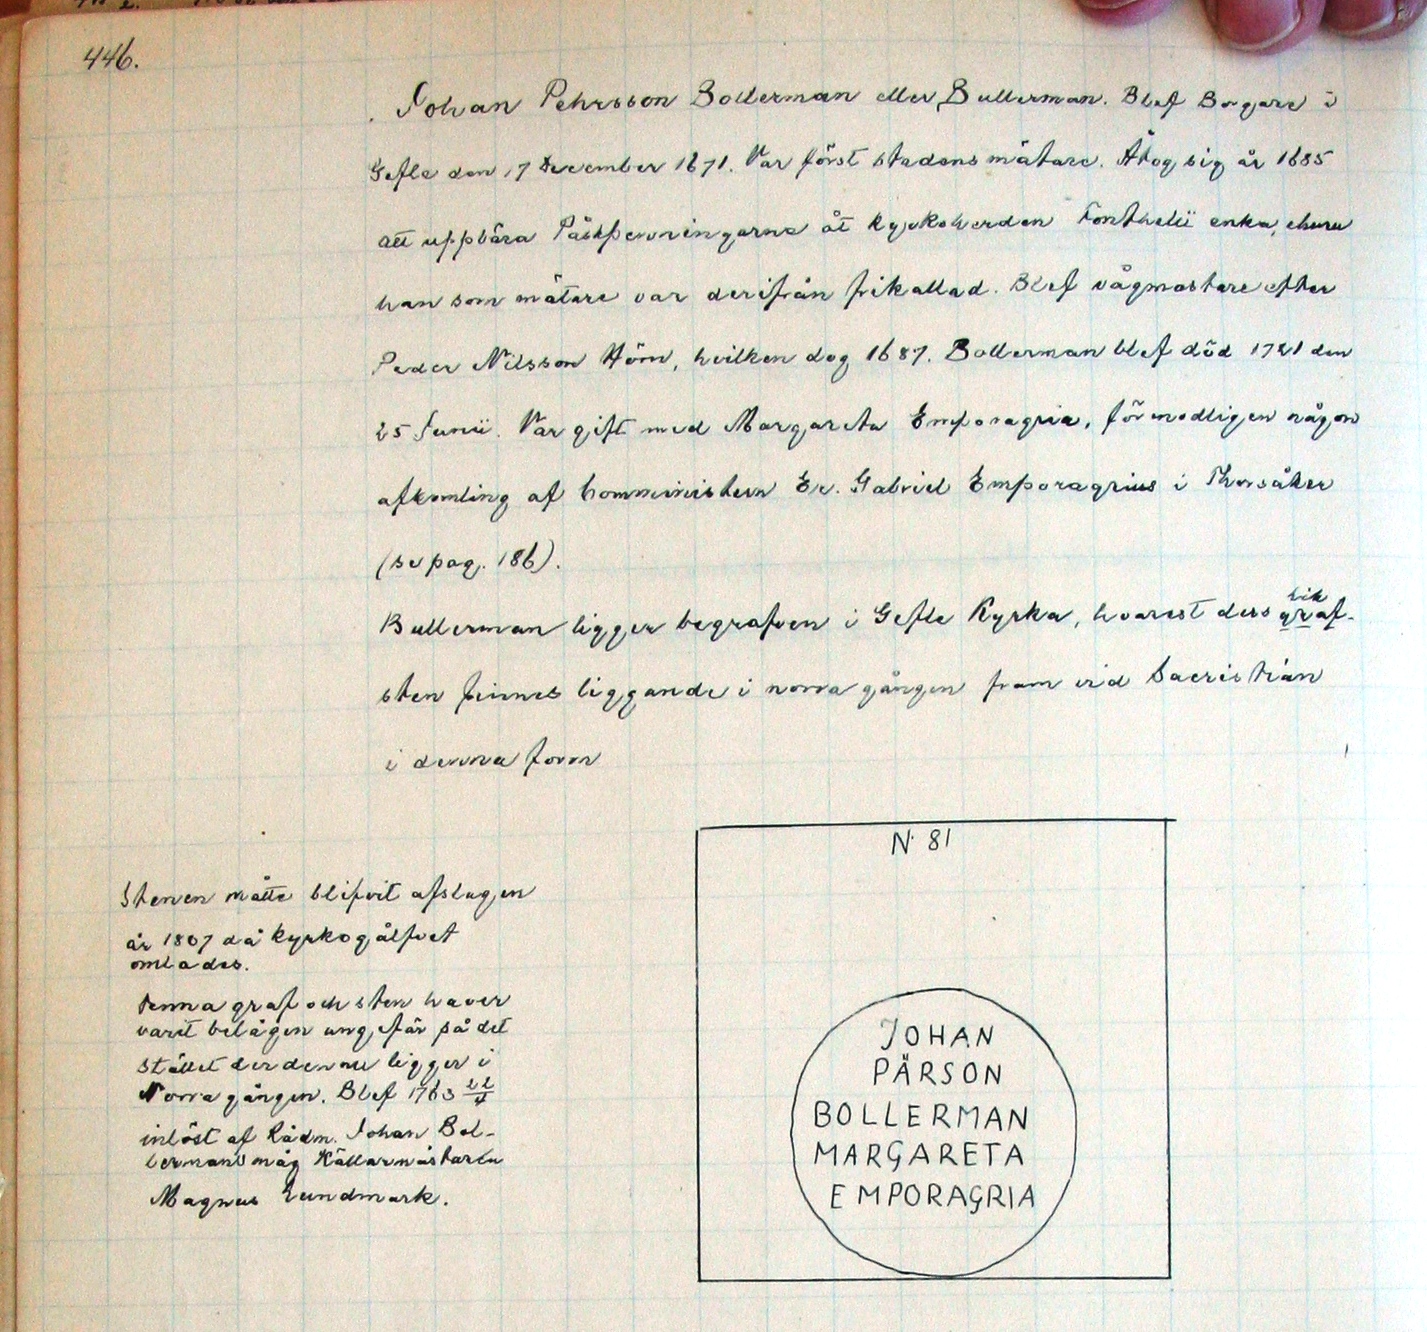 446.
Johan Pehrsson Bollerman eller Bullerman. Blef Borgare i
Gefle den 17 December 1671. Var först stadens mätare. Åtog sig år 1685
att uppbära Påskpenningarna åt Kyrkoherden Fonthelii enka, ehuru
han som mätare var derifrån frikallad. Blef vågmästare efter
Peder Nilsson Hörn, hvilken dog 1687. Bollerman blef död 1721 den
25 Junii. Var gift med Margareta Emporagria, förmodligen någon
afkomling af Comministern Er. Gabriel Emporagrius i Thorsåker
(se pag. 186).
Bullerman ligger begrafven i Gefle Kyrka, hvarest dess lik
graf-
sten finnes liggande i norra gången fram vid Sacristian
i denna form
N. 81
Stenen måtte blifvit afslagen
år 1807 då Kyrkogålfvet
omlades.
Denna graf och sten haver
varit belägen ungefär på det
stället der den nu ligger i
Norra gången. Blef 1763 22/4
inlöst af Rådm. Johan Bol-
lermans måg Källarmästaren
Magnus Lundmark.
JOHAN
PÄRSON
BOLLERMAN
MARGARETA
EMPORAGRIA